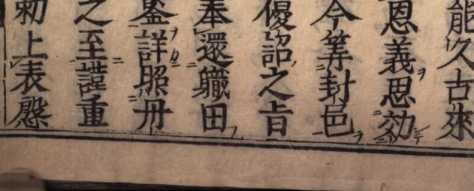 能久古來
恩義思効
今等封邑
優詔之旨
奉還職田
鍳詳照丹
之至謹重
勑上表慇